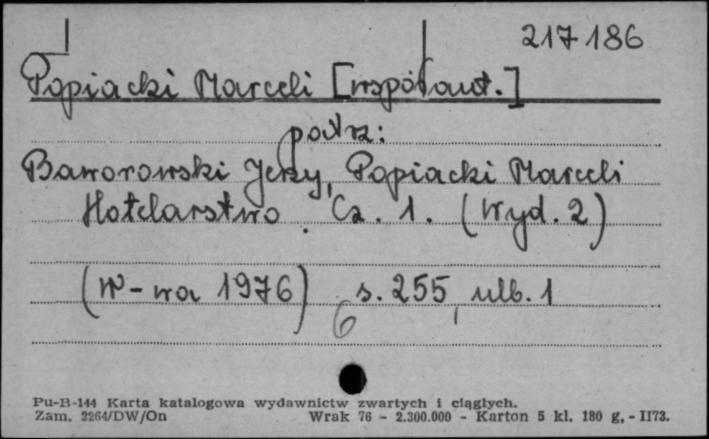 217186
Popiacki Marceli [współaut.]
patrz:
Baworowski Jerzy, Popiacki Marceli
Hotelarstwo. Cz. 1. (Wyd. 2)
(W-wa 1976) s. 255, nlb. 1
6
Pu-B-144 Karta katalogowa wydawnictw zwartych i ciągłych.
Zam. 2264/DW/On Wrak 76 - 2.300.000 - Karton 5 kl. 180 g. - II73.